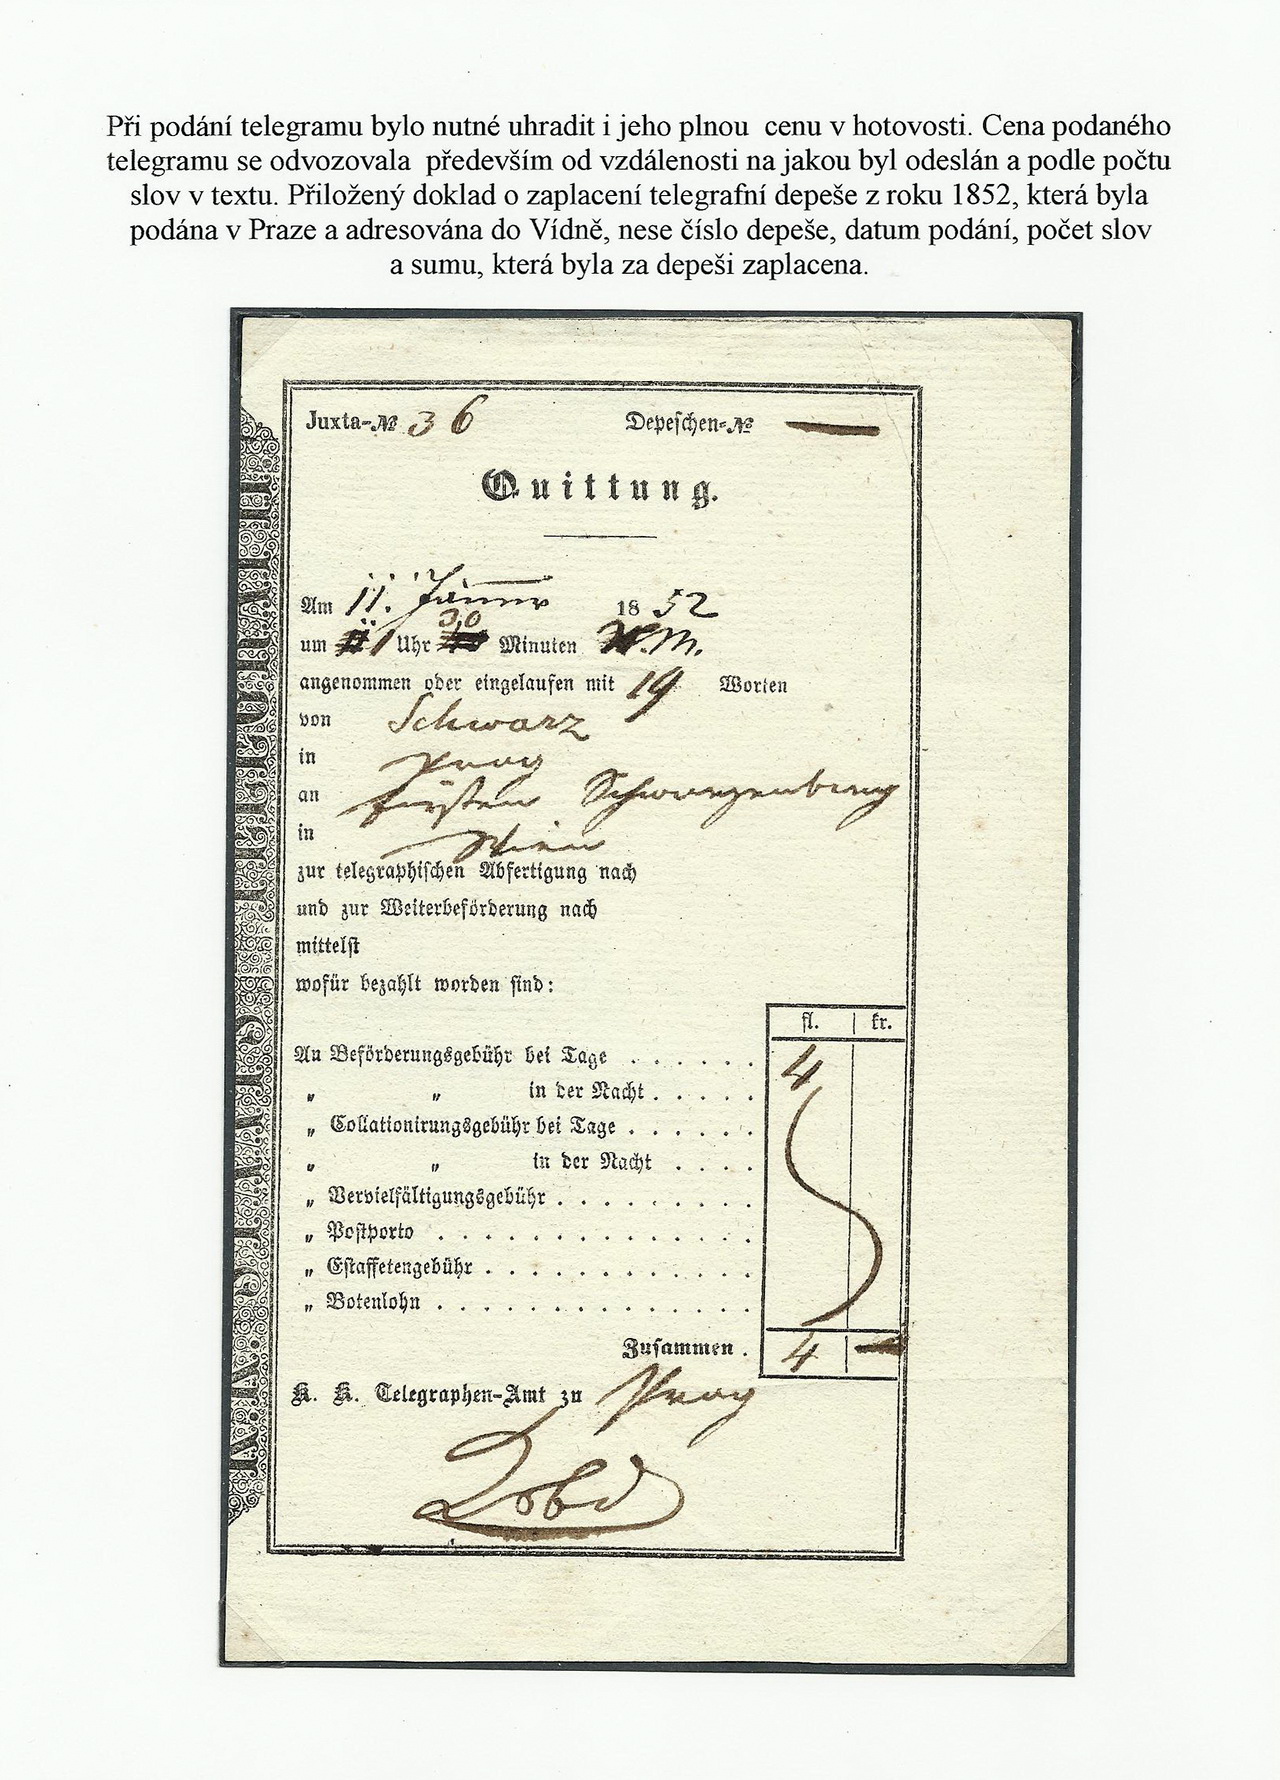 Při podání telegramu bylo nutné uhradit i jeho plnou cenu v hotovosti. Cena podaného
telegramu se odvozovala především od vzdálenosti na jakou byl odeslán a podle počtu
slov v textu. Přiložený doklad o zaplacení telegrafní depeše z roku 1852, která byla
podána v Praze a adresována do Vídně, nese číslo depeše, datum podání, počet slov
a sumu, která byla za depeši zaplacena.
Juxta-№ 36 Depeschen-№ —
Quittung.
Am 11. Jänner 1852
um 1 Uhr 30 Minuten N.M.
angenommen oder eingelaufen mit 19 Worten
von Schwarz
in Prag
an Fürsten Schwarzenberg
in Wien
zur telegraphischen Abfertigung nach
und zur Weiterbeförderung nach
mittelst
wofür bezahlt worden sind:
fl. kr.
An Beförderungsgebühr bei Tage . . . . . . 4
„ „ in der Nacht . . . . .
„ Collationirungsgebühr bei Tage . . . . . .
„ „ in der Nacht . . . .
„ Vervielfältigungsgebühr . . . . . . . . .
„ Postporto . . . . . . . . . . . . . .
„ Estaffetengebühr . . . . . . . . . . . .
„ Botenlohn . . . . . . . . . . . . . .
Zusammen . 4 —
K. K. Telegraphen-Amt zu Prag